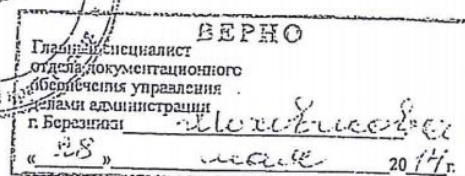 ВЕРНО
Главный специалист
отдела документационного
обеспечения управления
делами администрации
г. Березники
« 28 » мая 2014 г.